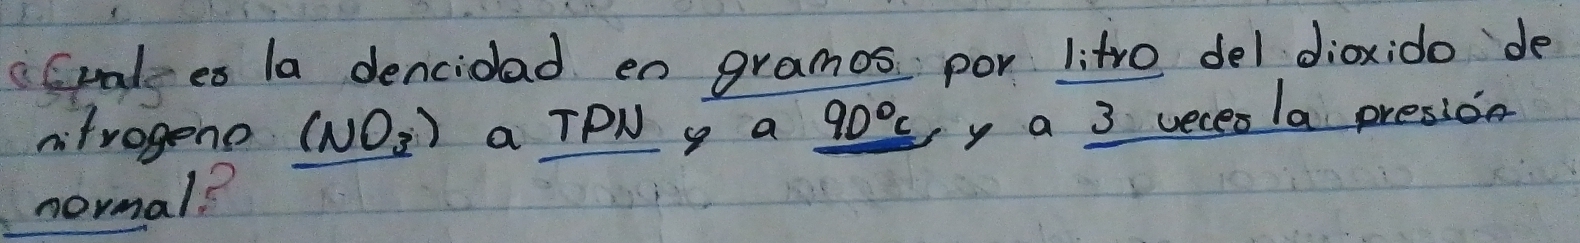 ¿Cual es la dencidad en gramos por litro del dioxido de
nitrogeno (NO₃) a TPN y a 90°c, y a 3 veces la presión
normal?